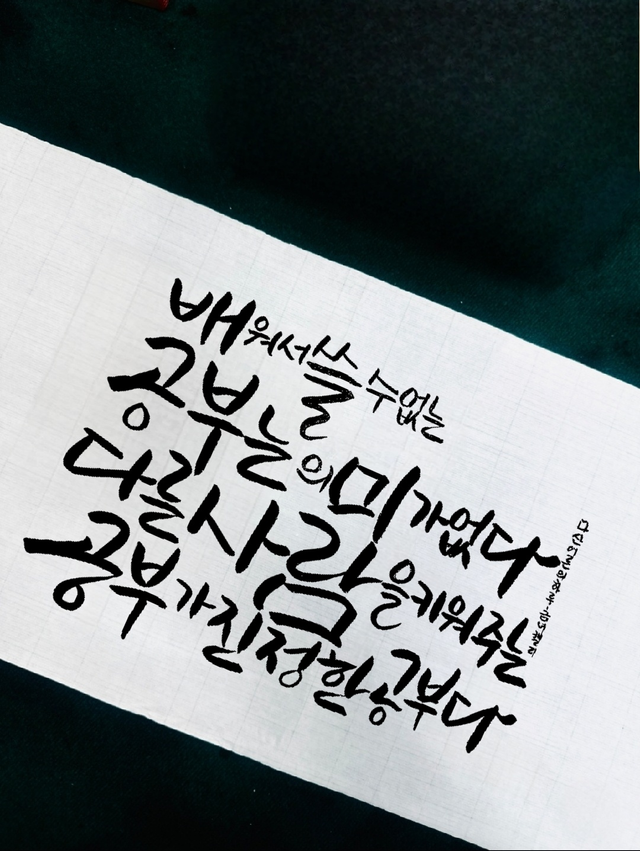 배워서쓸수없는
공부는의미가없다
다른사람을키워주는
공부가진정한공부다